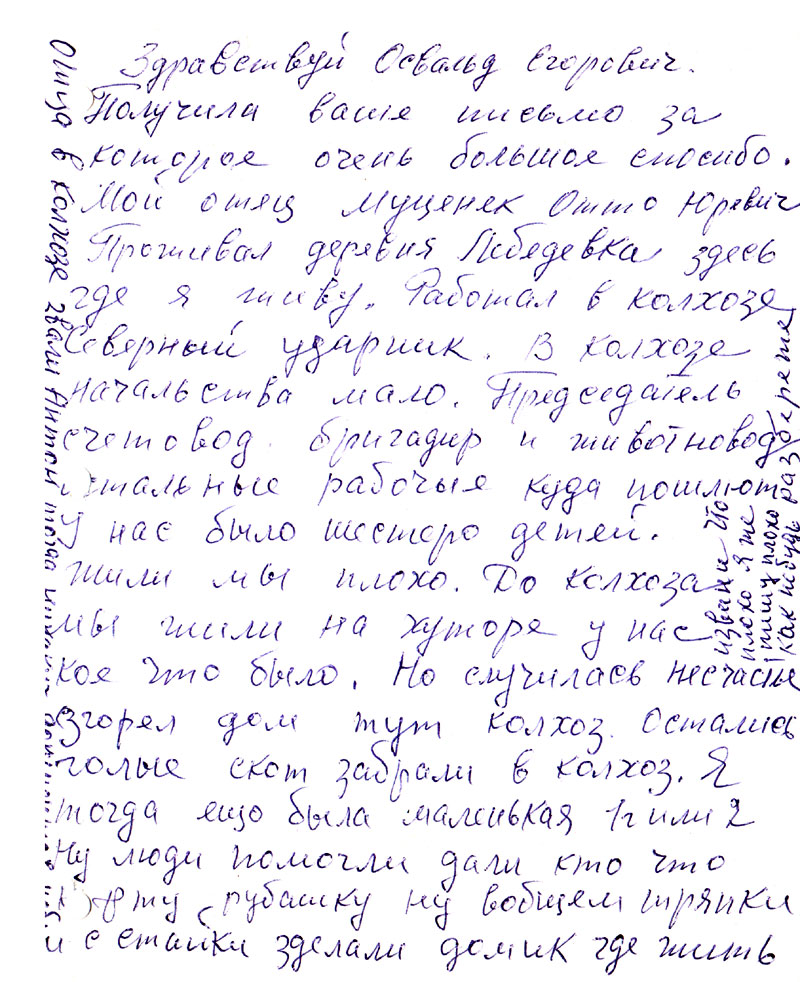 Здравствуй Освальд Егорович.
Получила ваше письмо за
которое очень большое спосибо.
Мой отец Муценек Отто Юревич
Проживал деревня Лебедевка здесь
где я живу. Работал в колхозе
Северный ударник. В колхозе
начальства мало. Председатель
счетовод. бригадир и животновод
остальные рабочые куда пошлют
У нас было шестеро детей.
Жили мы плохо. До колхоза
мы жили на хуторе у нас
кое что было. Но случилась несчастье
згорел дом тут колхоз. Остались
голые скот забрали в колхоз. Я
тогда ещо была маленькая 1г или 2
Ну люди помогли дали кто что
рубашку ну вобщем тряпки
и с стайки зделали домик где жить
Отца в колхозе звали Антон тогда
извени что
плохо я же
пишу плохо
как нибудь разберете